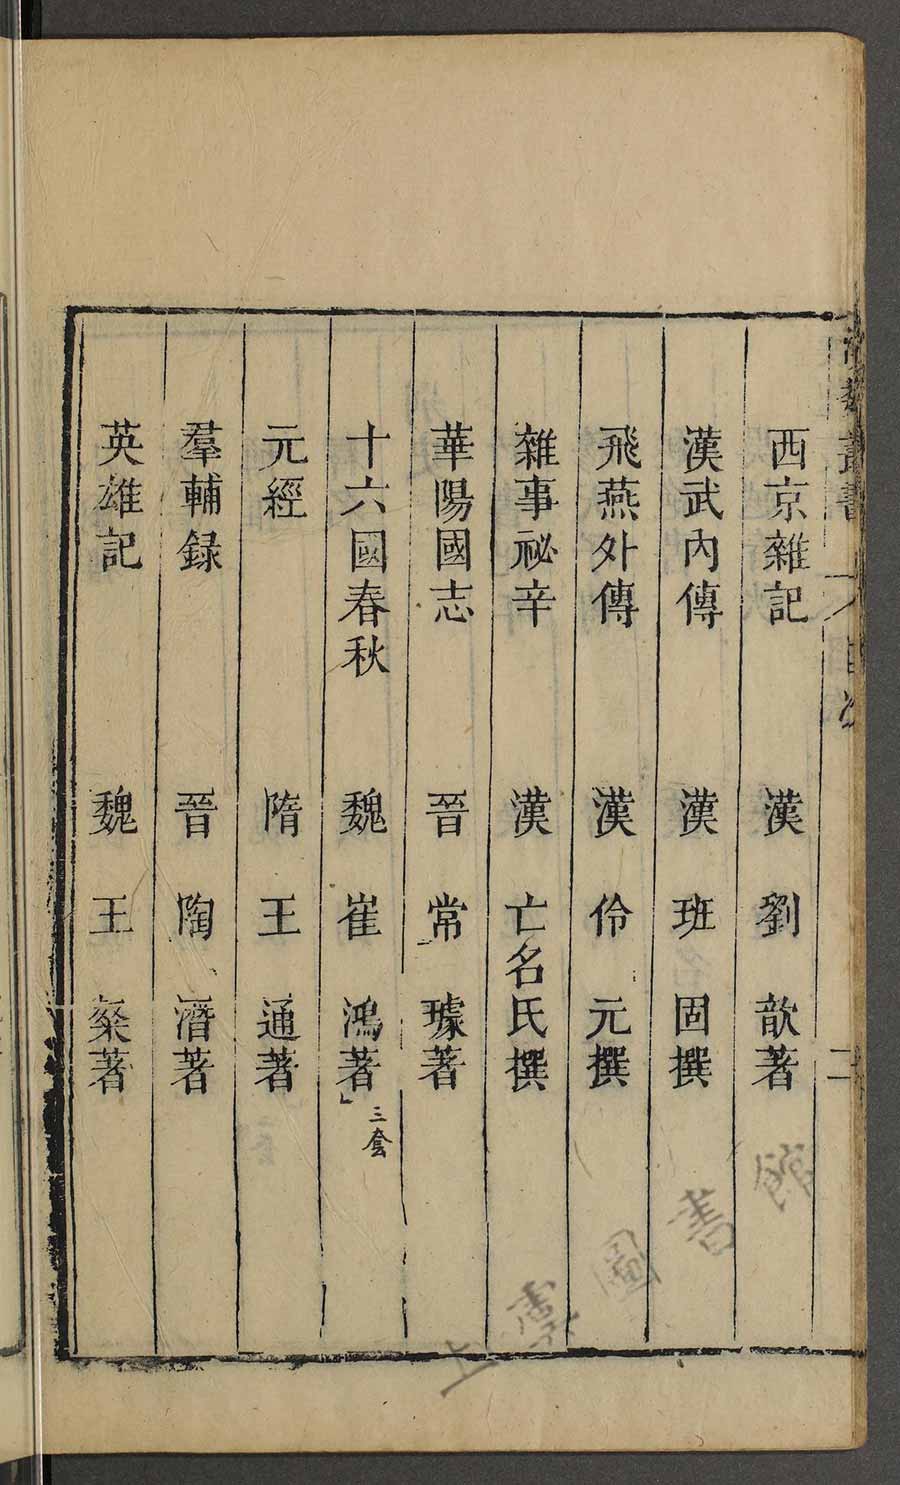 漢魏叢書 目次 二
西京雜記 漢 劉歆著
漢武內傳 漢 班固撰
飛燕外傳 漢 伶元撰
雜事祕辛 漢 亡名氏撰
華陽國志 晉 常璩著
十六國春秋 魏 崔鴻著」 三套
元經 隋 王通著
羣輔録 晉 陶潛著
英雄記 魏 王粲著
上虞圖書館